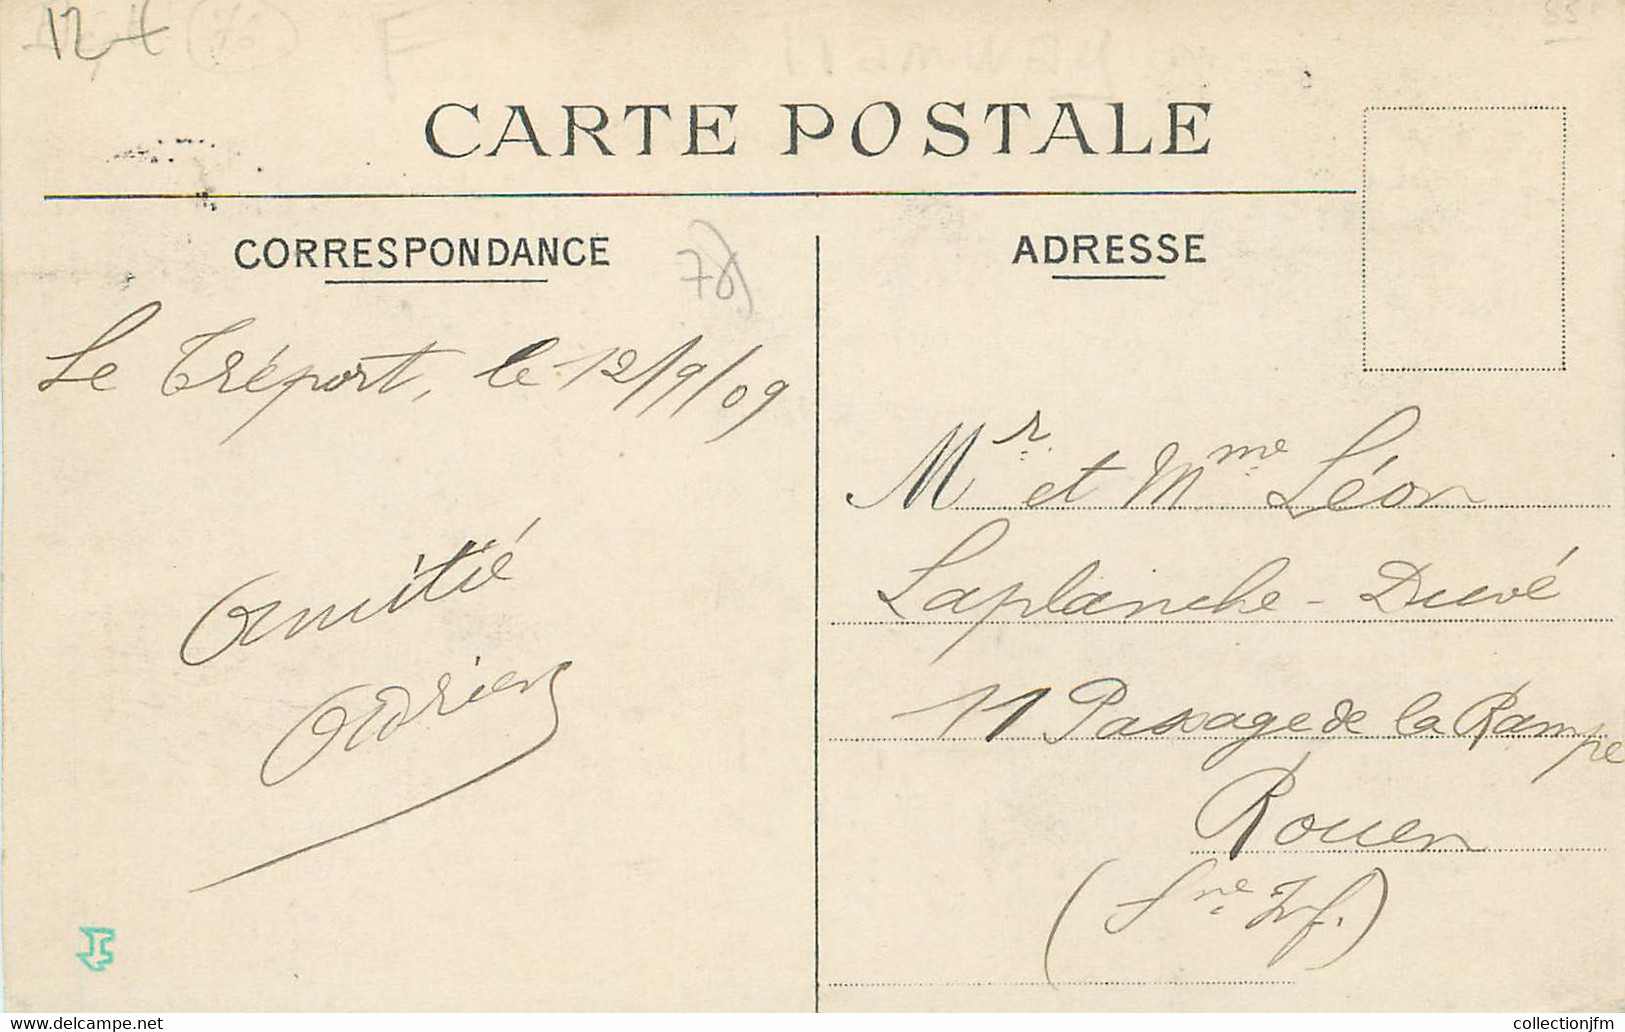 12 t
F
Tramway
55
CARTE POSTALE
CORRESPONDANCE
78)
ADRESSE
Le Tréport, le 12/9/09
Amitié
Adrien
Mr et Mme Léon
Laplanche - Duvé
11 Passage de la Rampe
Rouen
(Sne Inf.)
www.delcampe.net
collectionjfm